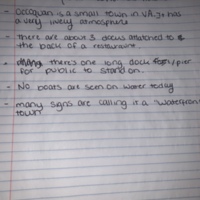 - Occoquan is a small town in VA. It has
a very lively atmosphere
- there are about 3 docks attatched to
the back of a restaurant.
- there's one long dock /pier
for public to stand on.
- No boats are seen on water today
- many signs are calling it a "waterfront
town"